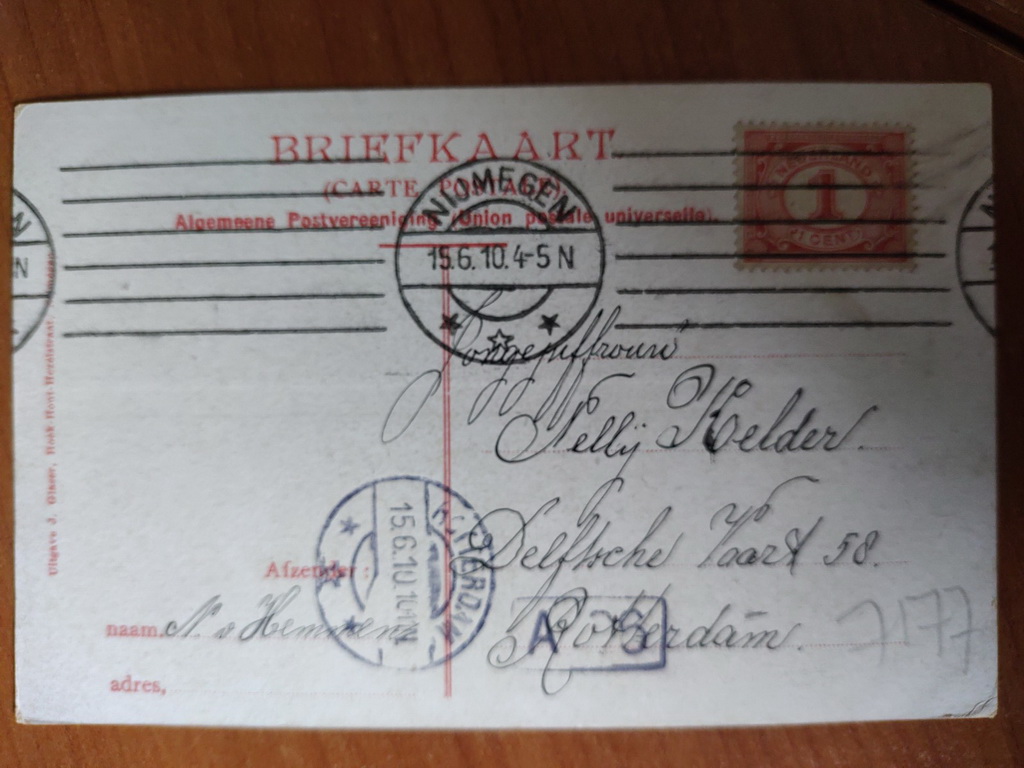 BRIEFKAART
(CARTE POSTALE)
Algemeene Postvereeniging (Union postale universelle).
NEDERLAND
1
1 CENT
NIJMEGEN
15.6.10.4-5 N
N
Jongejuffrouw
Nellij Kelder.
Delftsche Vaart 58.
Rotterdam.
7177
15.6.10.10-11N
ROTTERDAM
A
Afzender:
naam, N. v Hemmen
adres,
Uitgave J.